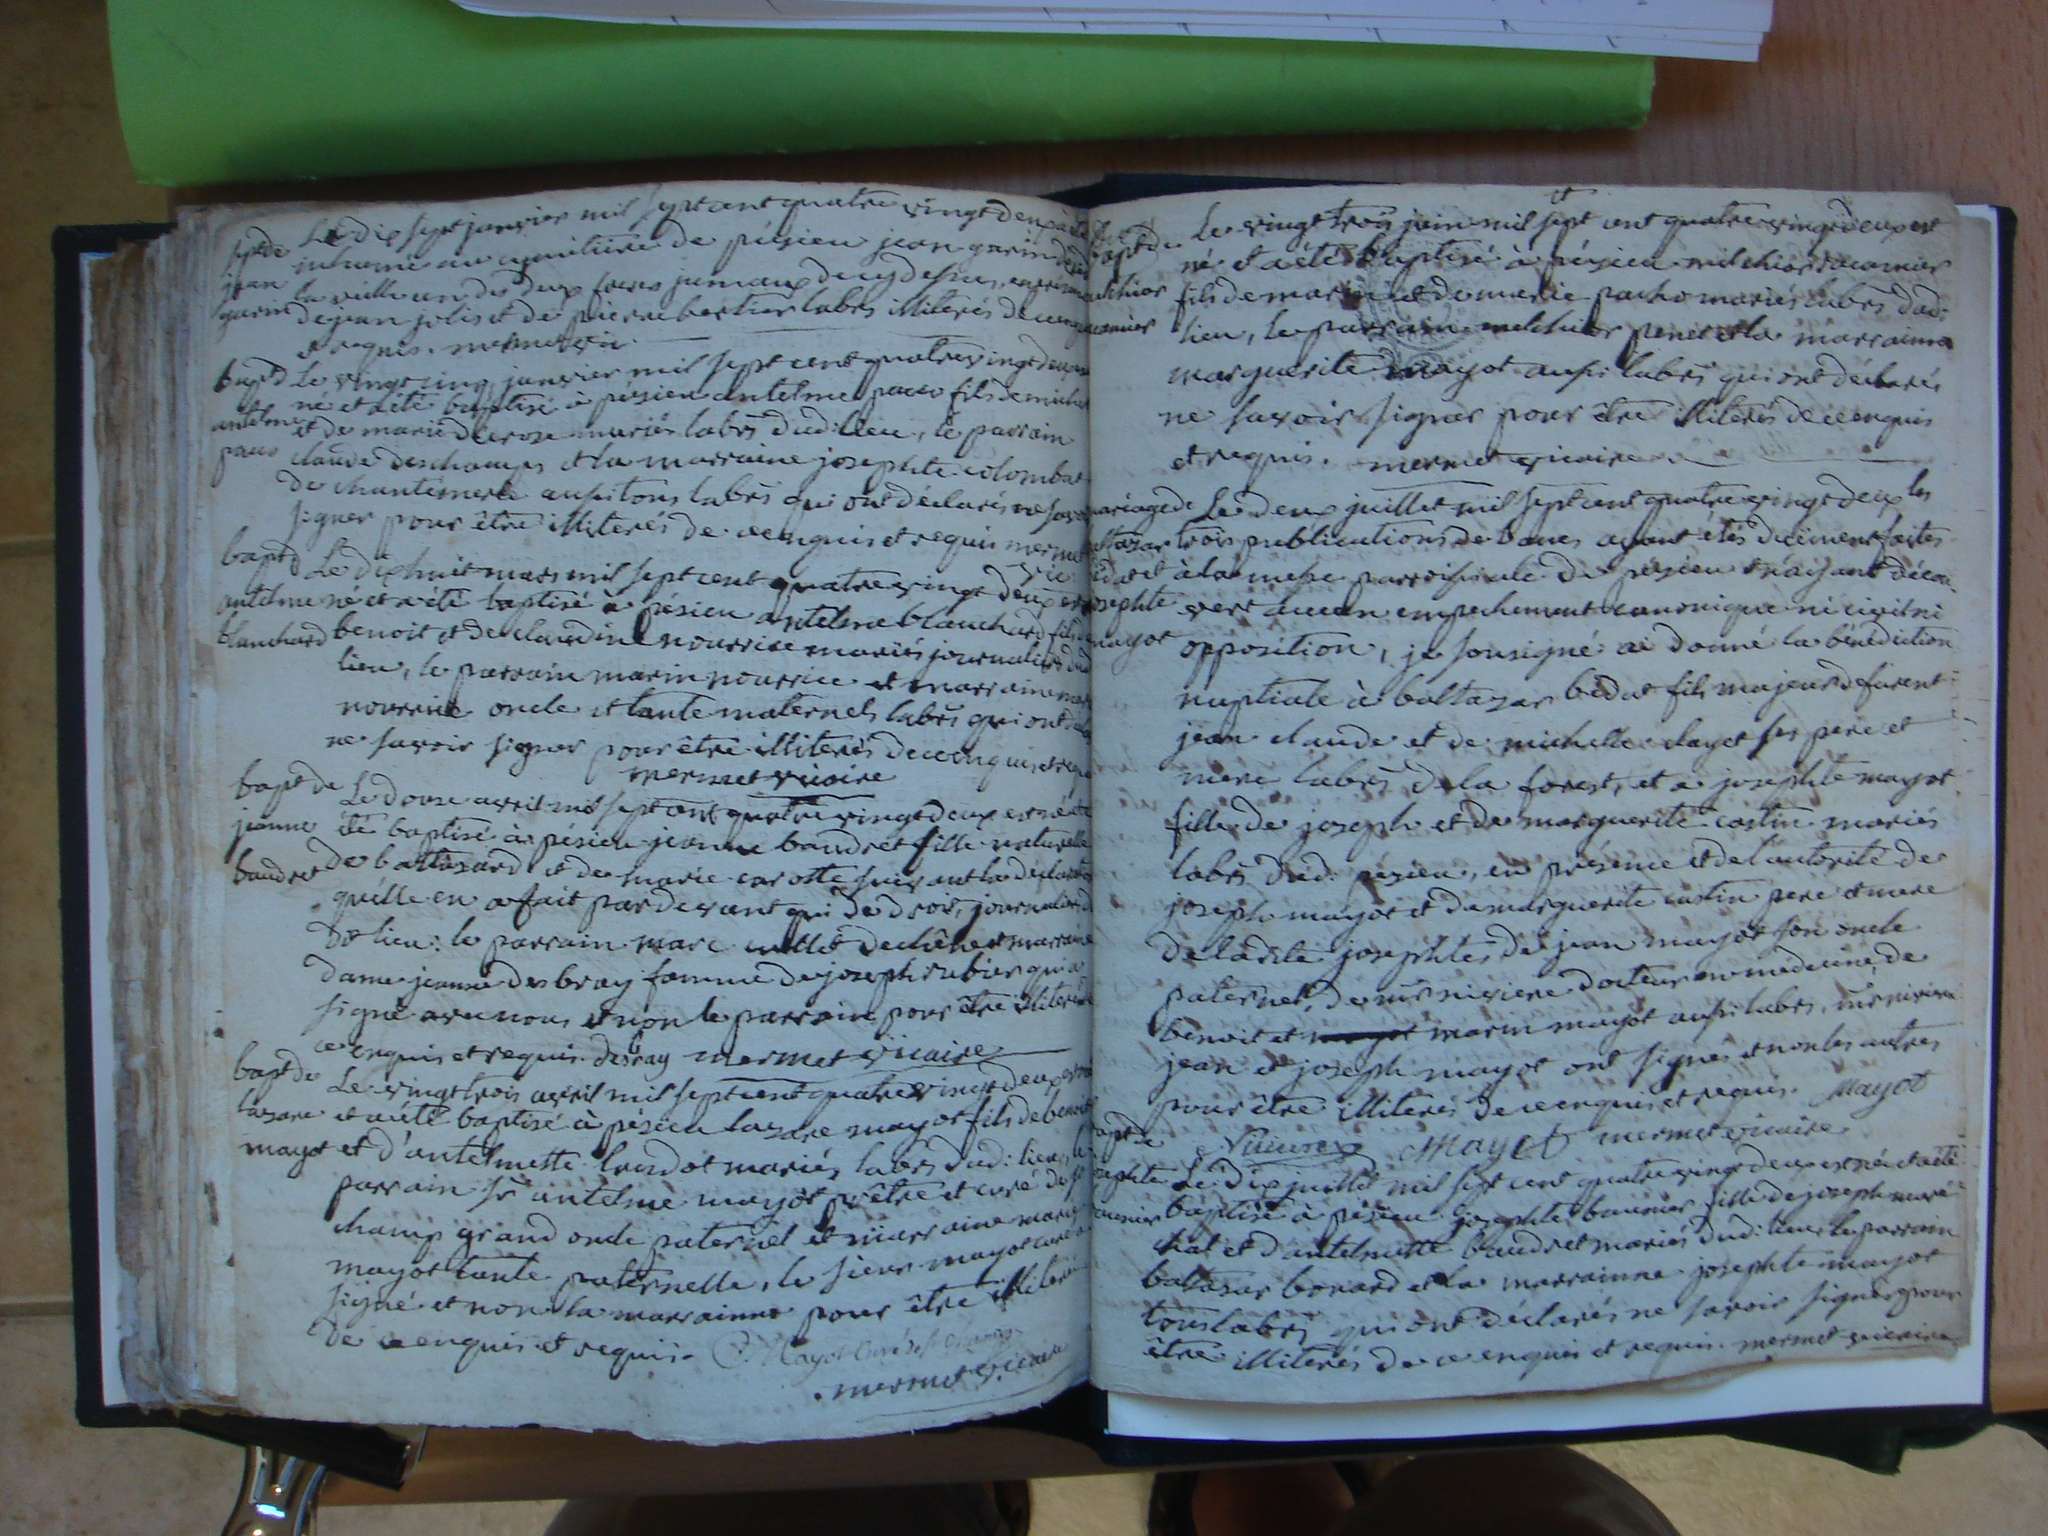 sept de
jean
garin
Le dix sept janvier mil sept cent quatre vingt deux a été
inhumé au cimitiere de pésieu jean garin décédé
la veille un des deux freres jumaux de cy dessus, en présence
de jean jolis et de pierre bertier labrs illiterés de ce enquis
et requis. mermet vic.
bapt d
antelme
paco
Le vingt cinq janvier mil sept cent quatre vingt deux est
né et a été baptisé à pésieu antelme paco fils de michel
et de marie decrose mariés labrs dud: lieu, le parrain
claude deschamps et la marraine josephte colombat
de chantemerle aussi tous labrs qui ont déclarés ne savoir
signer pour être illiterés de ce enquis et requis mermet
vic
bapt d
antelme
blanchard
Le dix huit mars mil sept cent quatre vingt deux est
né et a été baptisé à pésieu antelme blanchard fils de
benoit et de claudine nourrice mariés journaliers dud
lieu, le parrain marin nourrice et marraine marie
nourrice oncle et tante maternels labrs qui ont déclarés
ne savoir signer pour être illiterés de ce enquis et requis
mermet vicaire
bapt de
jeanne
baudret
Le douse avril mil sept cent quatre vingt deux est née et a
été baptisé à pésieu jeanne baudret fille naturelle
de baltasard et de marie carotte suivant la déclaration
qu'elle en a fait par devant qui de droit, journaliers
dt lieu: le parrain marc millet de chêne et marraine
dame jeanne desbray femme de joseph rubier qui a
signé avec nous et non le parrain pour être illiteré de
ce enquis et requis. desbray mermet vicaire
bapt de
lazare
mayot
Le vingt trois avril mil sept cent quatre vingt deux est né
et a été baptisé à pésieu lazare mayot fils de benoit
et d'antelmette brudot mariés labrs dud: lieu, le
parrain sr antelme mayot prêtre et curé de st
champ grand oncle paternel et marraine marie
mayot tante paternelle, le sieur mayot curé a
signé et non la marrainne pour être illiterée
de ce enquis et requis. Mayot Curé de st Champ
mermet vicaire
bapt de
melchior
Le vingt trois juin mil sept cent quatre vingt deux est
né et a été baptisé à pésieu melchior
fils de marin et de marie pacho mariés labrs dud:
lieu, le parrain melchior penet et la marrainne
marguerite mayot aussi labrs qui ont déclarés
ne savoir signer pour être illiterés de ce enquis
et requis. mermet vicaire
mariage de
baltazar
bidat et
josephte
mayot
Le deux juillet mil sept cent quatre vingt deux les
trois publications de bancs ayant étés duëment faites
à la messe parroissiale de pésieu et n'ayant décou
vert aucun empechement canonique ni civil ni
opposition, je sousigné ai donné la bénédiction
nuptiale à baltazar bidat fils majeur de furent
jean claude et de michelle clayet ses pere et
mere labrs de la forest, et a josephte mayot
fille de joseph et de marguerite costin mariés
labrs dud: pésieu, en présence et de l'autorité de
joseph mayot et de marguerite costin pere et mere
de ladite josephte, de jean mayot son oncle
paternel, de mr niviere docteur en médecine, de
benoit et marin mayot aussi labrs, mr niviere
jean et joseph mayot ont signés et non les autres
pour être illiterés de ce enquis et requis. Mayot
Niviere Mayot mermet vicaire
bapt de
josephte
baunier
Le dix juillet mil sept cent quatre vingt deux est née et a été
baptisé à pésieu josephte baunier fille de joseph maré
chal et d'antelmette baudret mariés dud: lieu le parrain
baltazar bonard et la marrainne josephte mayot
tous labrs qui ont déclarés ne savoir signer pour
être illiterés de ce enquis et requis. mermet vicaire